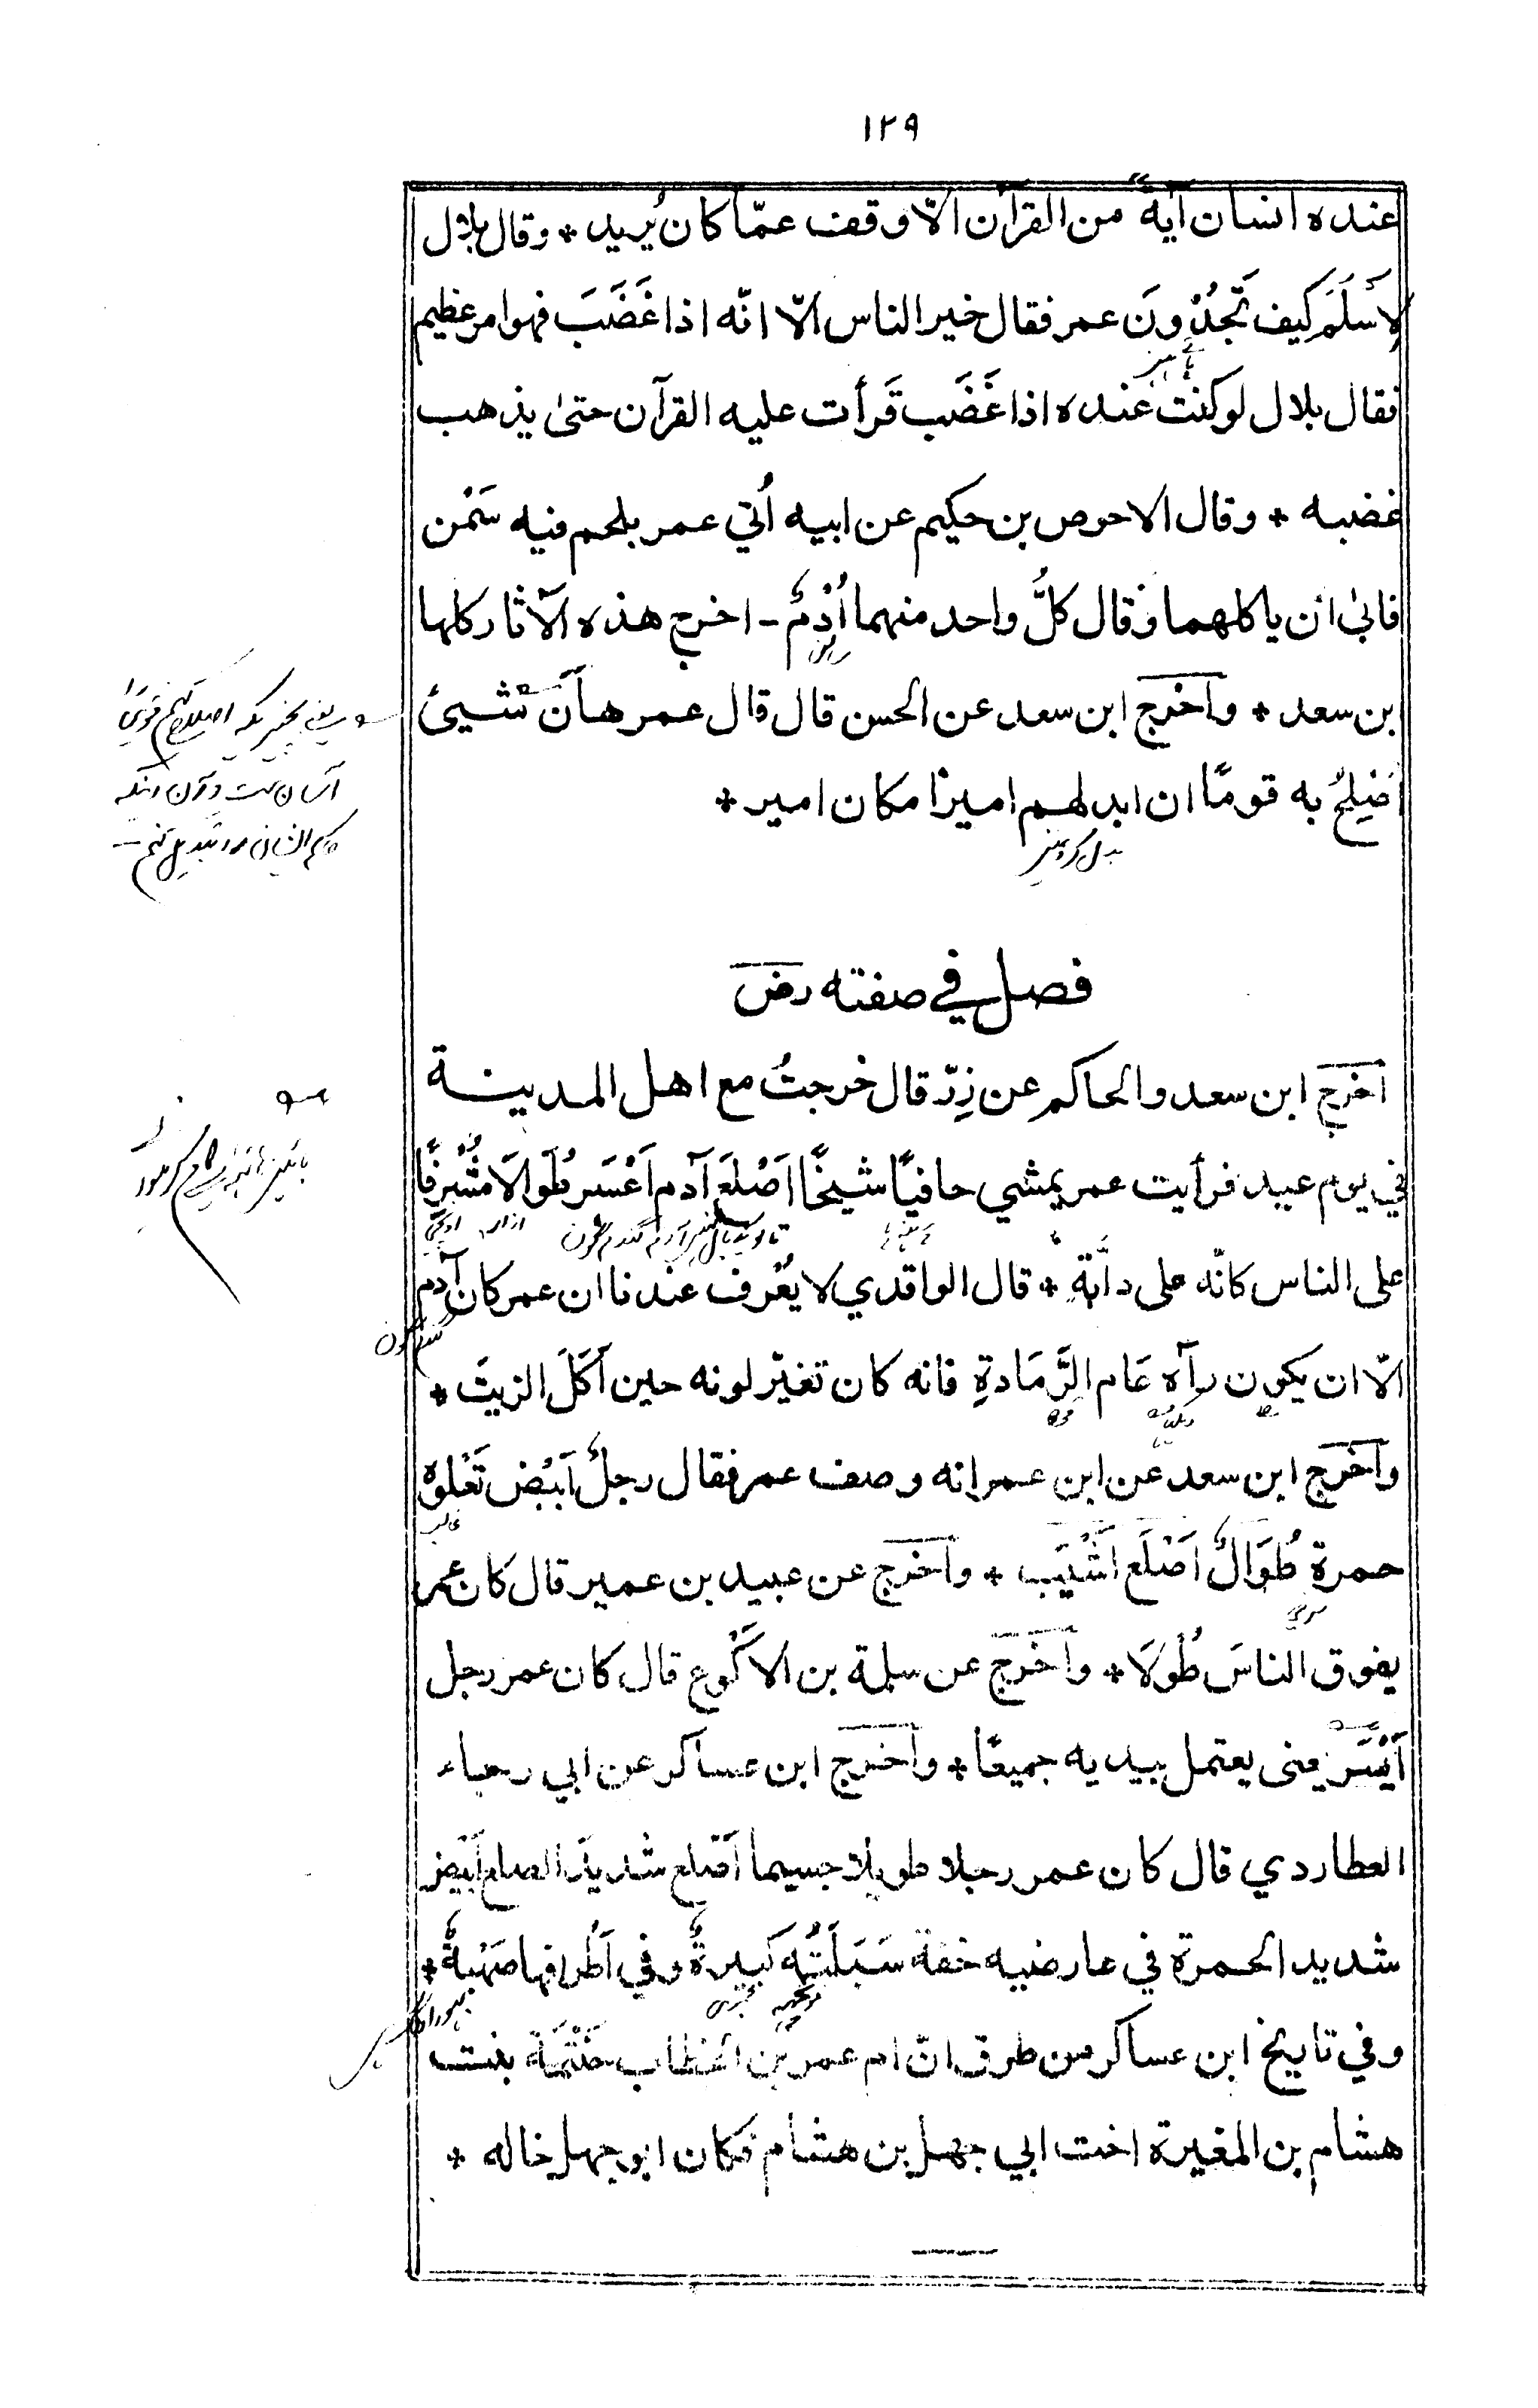 ١٢٩
عنده انسان آيةً من القرآن الّا وقف عمّا كان يُريد * وقال بلال
لاَسْلَمَ كيف تَجُدُونَ عمر فقال خير الناس الّا انّه اذا غَضَبَ فهو امر عظيم
فقال بلال لو كنت عنده اذا غَضَب قَرأت عليه القرآن حتىٰ يذهب
غضبه * وقال الاحوص بن حكيم عن ابيه اُتي عمر بلحم فيه سَمْن
فابىٰ ان ياكلهما وقال كلُّ واحد منهما اُدْمٌ - اخرج هذه الآثار كلها
ابن سعد * واخرج ابن سعد عن الحسن قال قال عمر هانَ شيئ
اُصْلِحُ به قومًا ان ابدلهم اميرًا مكان امير *
فصل في صفته رض
اخرج ابن سعد والحاكم عن زِرّ قال خرجتُ مع اهل المدينة
في يوم عيد فرأيت عمر يمشي حافيًا شيخًا اَصْلَعَ آدم اَعْسَر طُوَالًا مُشْرِفًا
على الناس كانّه على دابَّةٍ * قال الواقدي لا يُعْرف عندنا ان عمر كان آدم
الّا ان يكون رآه عَام الرَّمَادةِ فانه كان تغيّر لونه حين اَكَلَ الزيتَ *
واخرج ابن سعد عن ابن عمر انه وصف عمر فقال رجلٌ اَبْيَض تَعْلوهُ
حمرة طُوَالٌ اَصْلَع اَشْيَب * واخرج عن عبيد بن عمير قال كان عمر
يفوق الناسَ طُوْلَا * واخرج عن سلمة بن الاَكْوع قال كان عمر رجل
اَيْسَرَ يعنى يعتمل بيديه جميعًا * واخرج ابن عساكر عن ابي رجاء
العطاردي قال كان عمر رجلا طويلا جسيما اَصْلع شديدَ الصلع اَبْيَض
شديد الحمرة في عارضيه خفة سَبَلَتُه كبيرةٌ وفي اَطْرافها صَهْبةٌ *
وفي تاريخ ابن عساكر من طرق انّ ام عمر بن الخطاب حَنْتَمَة بنت
هشام بن المغيرة اخت ابي جهل بن هشام فكان ابو جهل خاله *